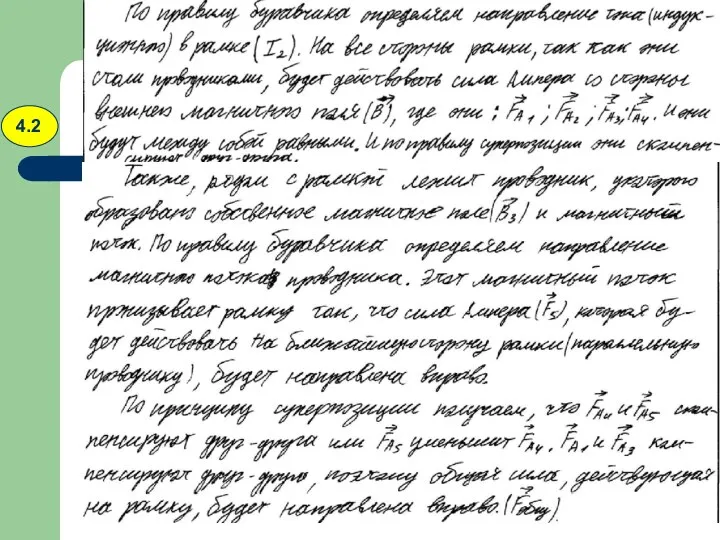 По правилу буравчика определяем направление тока (индук-
ционного) в рамке (I₂). На все стороны рамки, так как они
4.2
стали проводниками, будет действовать сила Ампера со стороны
внешнего магнитного поля (B⃗), где они: F⃗A1; F⃗A2; F⃗A3; F⃗A4. И они
будут между собой равными. И по правилу суперпозиции они скомпен-
друг-друга.
Также, рядом с рамкой лежит проводник, у которого
образовано собственное магнитное поле (B⃗₃) и магнитный
поток. По правилу буравчика определяем направление
магнитного потока проводника. Этот магнитный поток
пронизывает рамку так, что сила Ампера (F⃗5), которая бу-
дет действовать на ближайшую сторону рамки (параллельную
проводнику), будет направлена вправо.
По принципу суперпозиции получаем, что F⃗A4 и F⃗A5 ском-
пенсируют друг-друга или F⃗A5 уменьшит F⃗A4. F⃗A1 и F⃗A3 ком-
пенсируют друг-друга, поэтому общая сила, действующая
на рамку, будет направлена вправо. (F⃗общ).